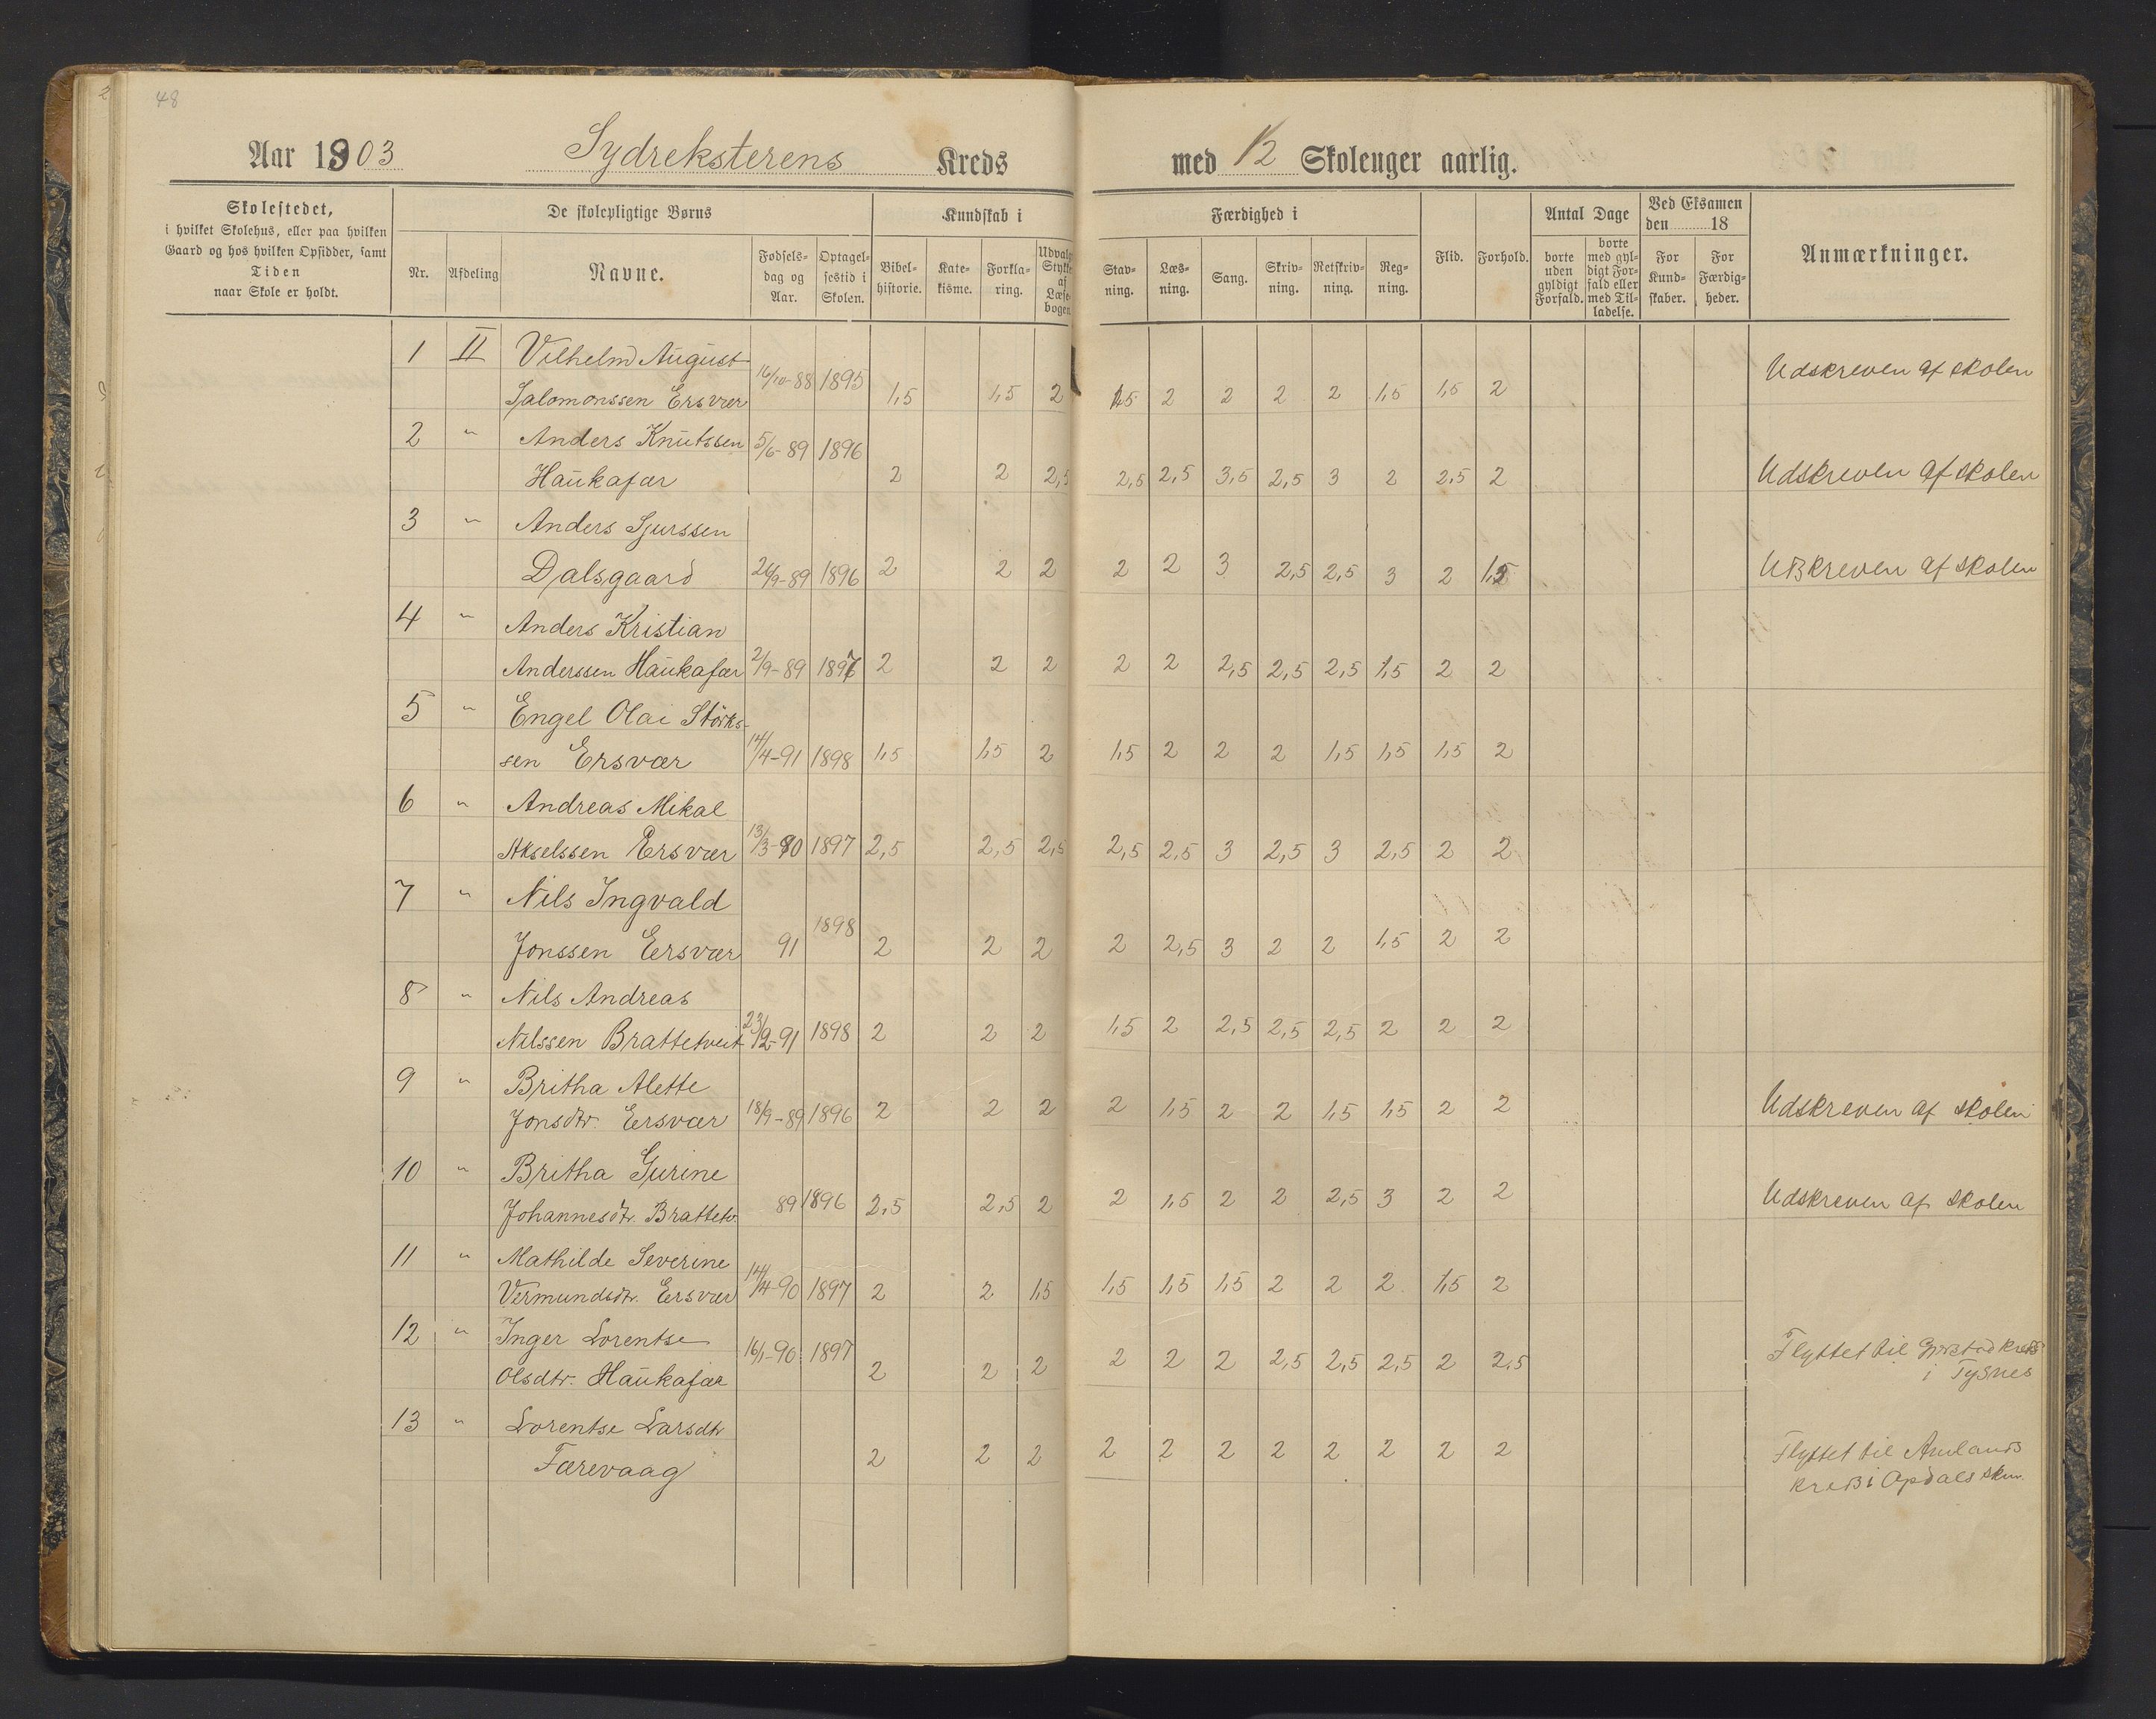 48
Aar 1903 Sydreksterens Kreds med 12 Skoleuger aarlig.
Skolestedet,
i hvilket Skolehus, eller paa hvilken
Gaard og hos hvilken Opsidder, samt
Tiden
naar Skole er holdt.
De skolepligtige Børns
Nr. Afdeling Navne.
Fødsels-
dag og
Aar.
Optagel-
sestid i
Skolen.
Kundskab i
Bibel-
historie.
Kate-
kisme.
Forkla-
ring.
Udvalgte
Stykker
af
Læse-
bogen
Færdighed i
Stav-
ning.
Læs-
ning.
Sang.
Skriv-
ning.
Retskriv-
ning.
Reg-
ning.
Flid. Forhold.
Antal Dage
borte
uden
gyldigt
Forfald.
borte
med gyl-
digt For-
fald eller
med Til-
ladelse.
Ved Eksamen
den 18
For
Kund-
skaber.
For
Færdig-
heder.
Anmærkninger.
1 II Vilhelm August
Salomonssen Ersvær 16/10-88 1895 1,5 1,5 2 1,5 2 2 2 2 1,5 1,5 2 Udskreven af skolen
2 " Anders Knutssen 5/6-89 1896
Haukafær 2 2 2,5 2,5 2,5 3,5 2,5 3 2 2,5 2 Udskreven af skolen
3 " Anders Sjurssen
Dalsgaard 26/9-89 1896 2 2 2 2 2 3 2,5 2,5 3 2 1,5 Udskreven af skolen
4 " Anders Kristian
Anderssen Haukafær 2/9-89 1897 2 2 2 2 2 2,5 2,5 2,5 1,5 2 2
5 " Engel Olai Størks-
sen Ersvær 14/4-91 1898 1,5 1,5 2 1,5 2 2 2 1,5 1,5 1,5 2
6 " Andreas Mikal
Akselssen Ersvær 13/3-90 1897 2,5 2,5 2,5 2,5 2,5 3 2,5 3 2,5 2 2
7 " Nils Ingvald
Jonssen Ersvær 91 1898 2 2 2 2 2,5 3 2 2 1,5 2 2
8 " Nils Andreas
Nilssen Brattetveit 23/2-91 1898 2 2 2 1,5 2 2,5 2,5 2,5 2 2 2
9 " Britha Alette
Jonsdtr. Ersvær 18/9-89 1896 2 2 2 2 1,5 2 2 1,5 1,5 2 2 Udskreven af skolen
10 " Britha Gurine
Johannesdtr. Brattetv. 89 1896 2,5 2,5 2 2 1,5 2 2 2,5 3 2 2 Udskreven af skolen
11 " Mathilde Severine
Vermundsdtr. Ersvær 14/4-90 1897 2 2 1,5 1,5 1,5 1,5 2 2 2 1,5 2
12 " Inger Lorentse
Olsdtr. Haukafær 16/1-90 1897 2 2 2 2 2 2 2,5 2,5 2,5 2 2,5 Flyttet til kreds
i Tysnes
13 " Lorentse Larsdtr
Færevaag 2 2 2 2 2 2 2 2 2 2 2 Flyttet til Amlands
kreds i Opdals skm.